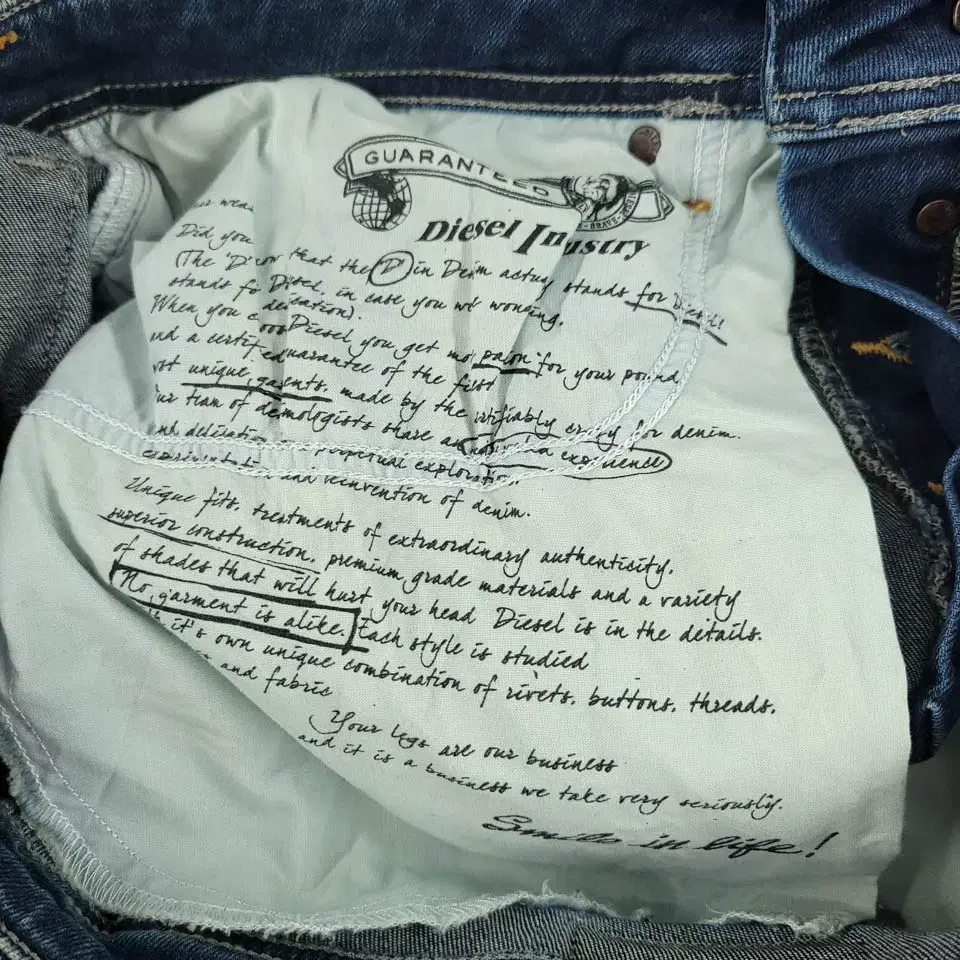 GUARANTEED
BRAVE
Diesel Industry
wea
Did you
(The 'D' that the 'D' in Denim actually stands for Diesel!
stands for Diesel, in case you wonding.
dedication).
When you Diesel you get mo passion for your pound,
and a certif guarantee of the first
unique garments, made by the certifiably crazy for denim.
our team of denimologists share an experience
and dedication perpetual exploration
and reinvention of denim.
Unique fits, treatments of extraordinary authenticity,
superior construction, premium grade materials and a variety
of shades that will hurt your head Diesel is in the details.
No garment is alike. Each style is studied
it's own unique combination of rivets, buttons, threads,
and fabric
Your legs are our business
and it is a business we take very seriously.
Smile in life!